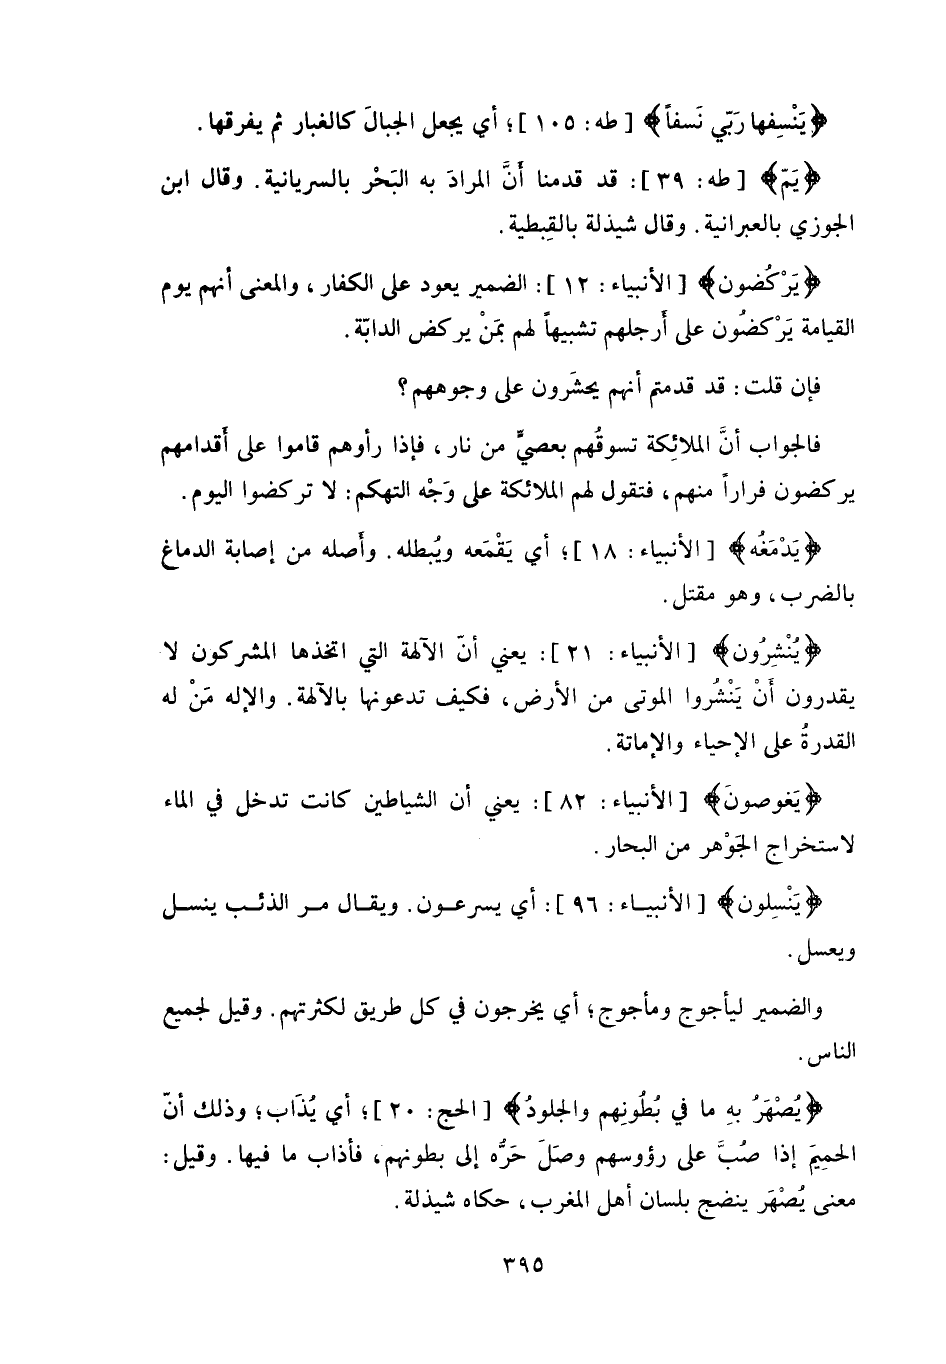 ﴿يَنْسِفها رَبّي نَسفاً﴾ [ طه: ١٠٥ ]؛ أي يجعل الجبالَ كالغبار ثم يفرقها.
﴿يَمّ﴾ [ طه: ٣٩ ]: قد قدمنا أنَّ المرادَ به البَحْر بالسريانية. وقال ابن
الجوزي بالعبرانية. وقال شيذلة بالقِبطية.
﴿يَرْكُضون﴾ [ الأنبياء: ١٢ ]: الضمير يعود على الكفار، والمعنى أنهم يوم
القيامة يَرْكضُون على أَرجلهم تشبيهاً لهم بمَنْ يركض الدابّة.
فإن قلت: قد قدمتم أنهم يحشَرون على وجوههم؟
فالجواب أنَّ الملائِكة تسوقُهم بعصيٍّ من نار، فإذا رأوهم قاموا على أَقدامهم
يركضون فراراً منهم، فتقول لهم الملائكة على وَجْه التهكم: لا تركضوا اليوم.
﴿يَدْمَغُه﴾ [ الأنبياء: ١٨ ]؛ أي يَقْمَعه ويُبطله. وأَصله من إصابة الدماغ
بالضرب، وهو مقتل.
﴿يُنْشِرُون﴾ [ الأنبياء: ٢١ ]: يعني أنّ الآلهة التي اتخذها المشركون لا
يقدرون أَنْ يَنْشُروا الموتى من الأرض، فكيف تدعونها بالآلهة. والإله مَنْ له
القدرةُ على الإحياء والإماتة.
﴿يَغوصونَ﴾ [ الأنبياء: ٨٢ ]: يعني أن الشياطين كانت تدخل في الماء
لاستخراج الجَوْهر من البحار.
﴿يَنْسِلون﴾ [ الأنبياء: ٩٦ ]: أي يسرعون. ويقال مر الذئب ينسل
ويعسل.
والضمير ليأجوج ومأجوج؛ أي يخرجون في كل طريق لكثرتهم. وقيل لجميع
الناس.
﴿يُصْهَرُ بهِ ما في بُطُونِهم والجلودُ﴾ [ الحج: ٢٠ ]؛ أي يُذَاب؛ وذلك أنّ
الحمِيمَ إذا صُبَّ على رؤوسهم وصَلَ حَرُّه إلى بطونهم، فأذاب ما فيها. وقيل:
معنى يُصْهَر ينضج بلسان أهل المغرب، حكاه شيذلة.
٣٩٥